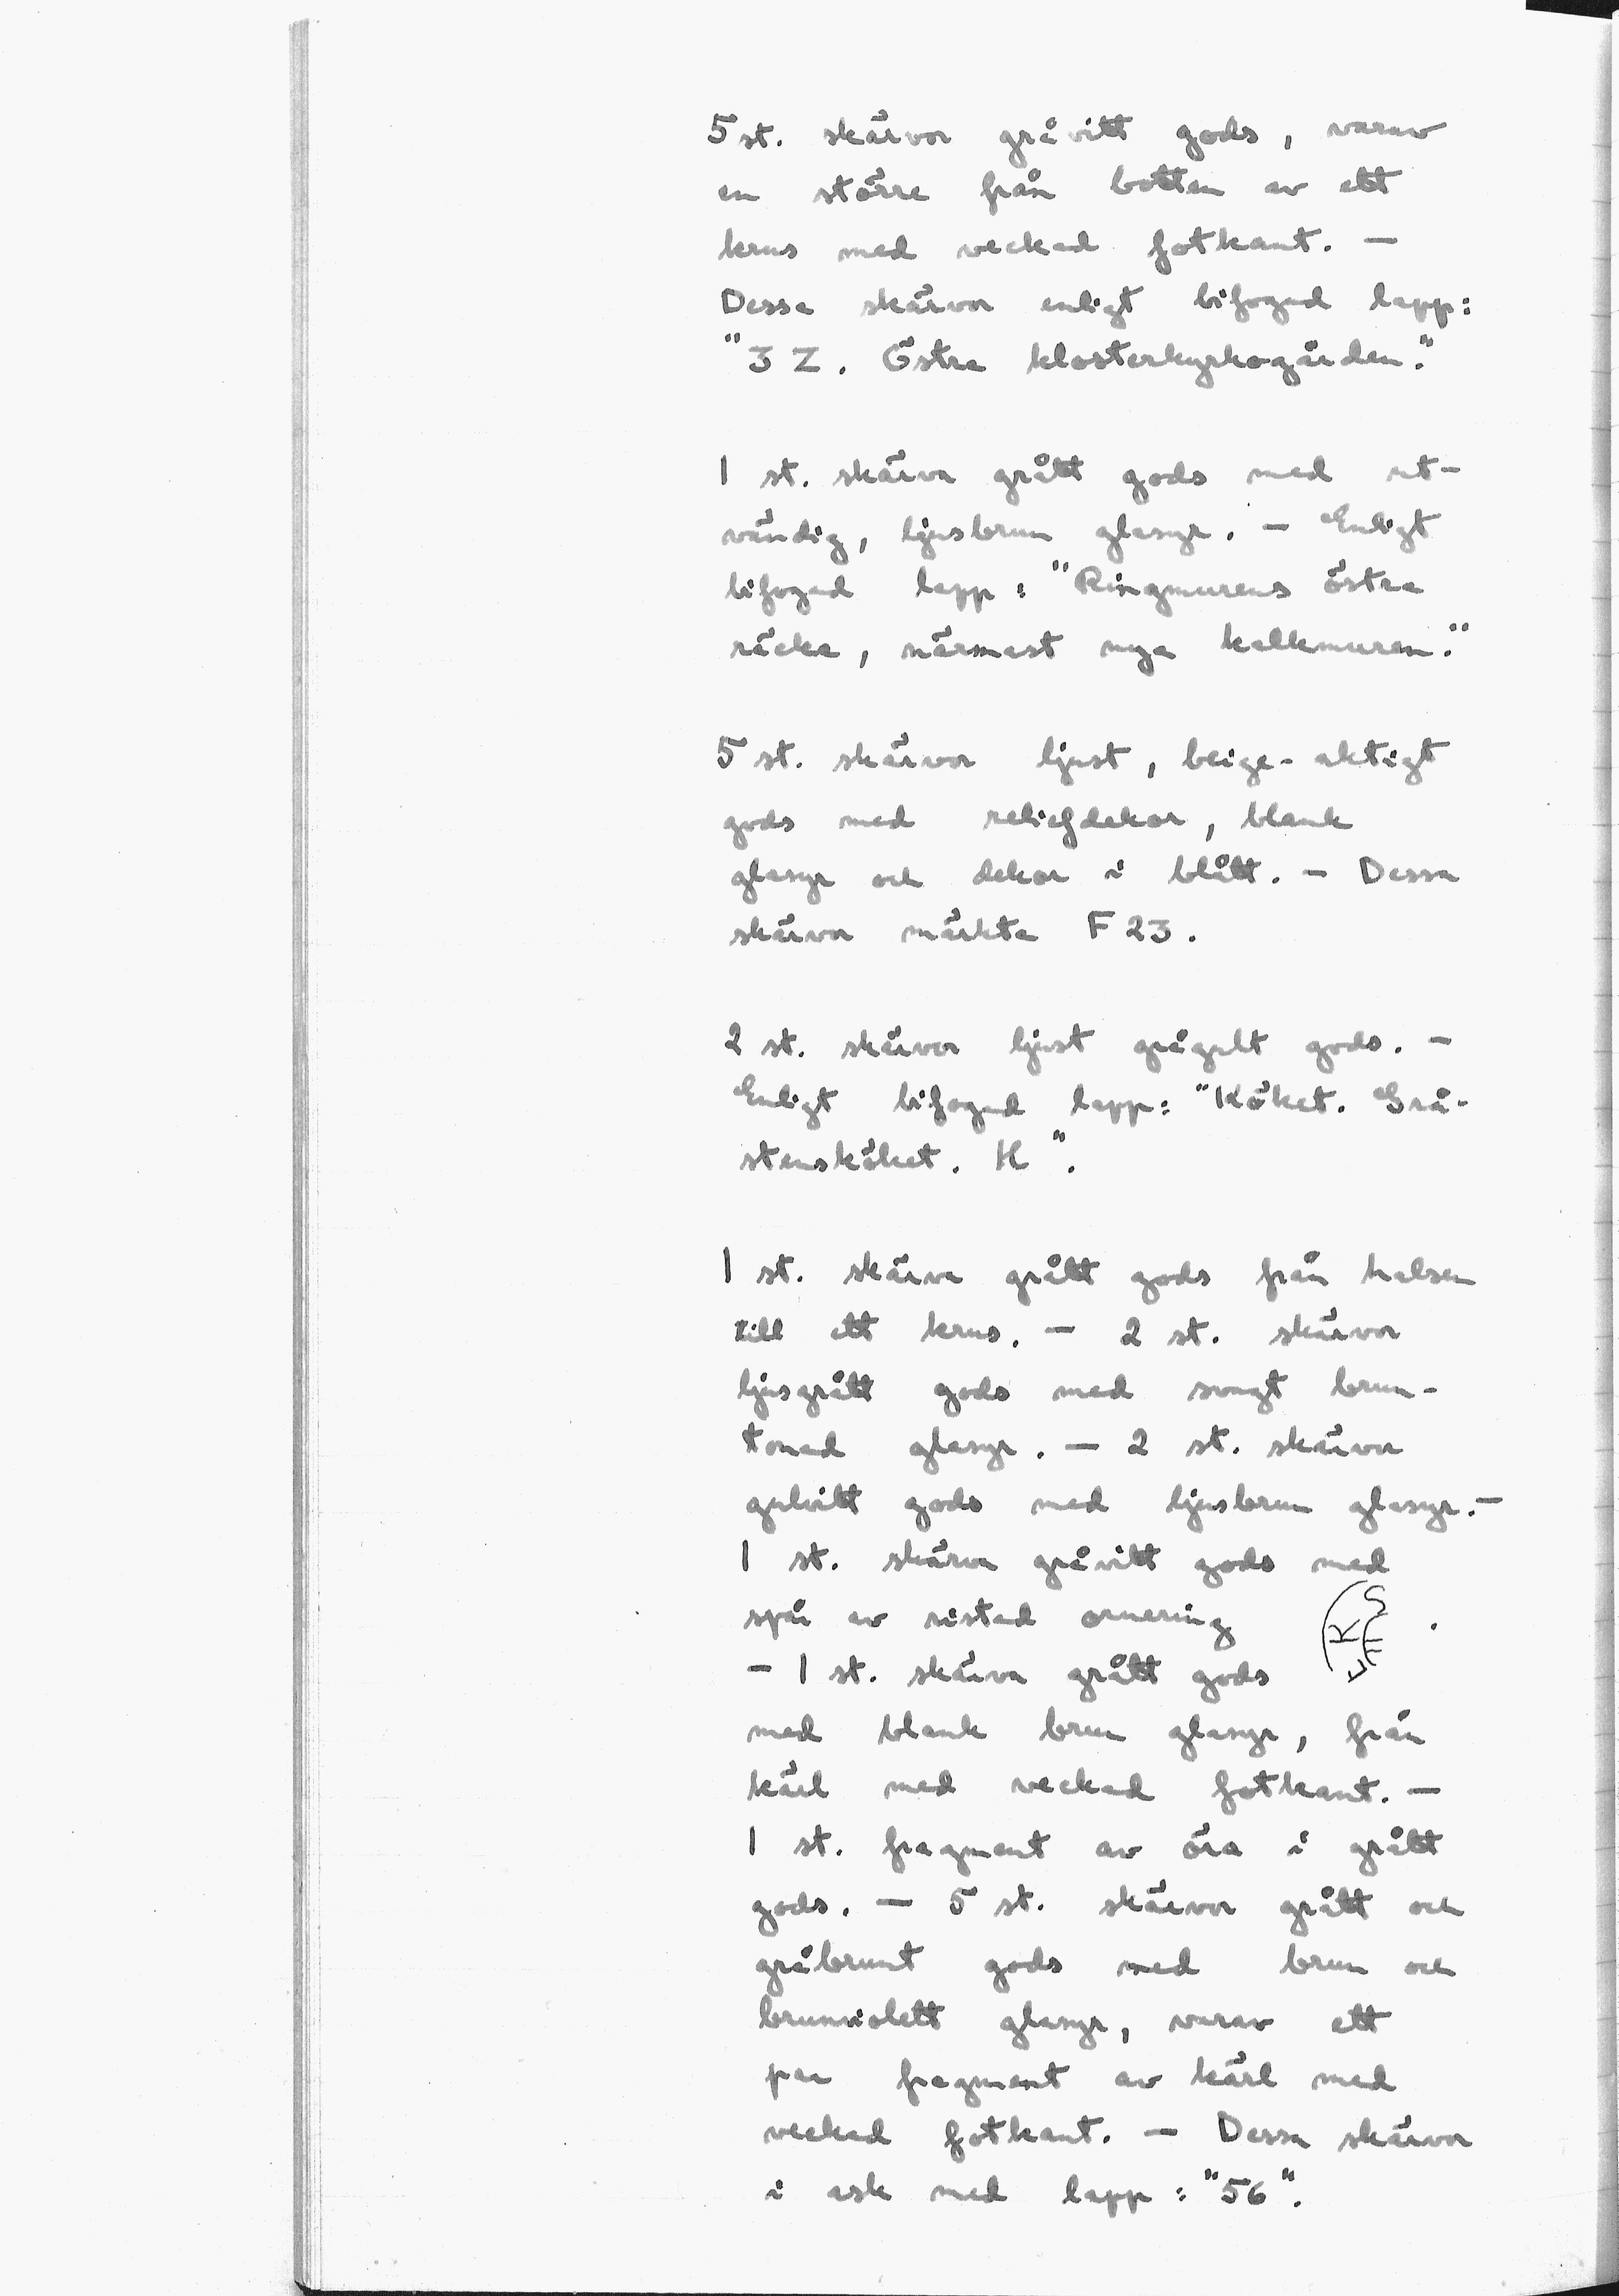 5 st. skärvor gråvitt gods, varav
en större från botten av ett
krus med veckad fotkant. —
Dessa skärvor enligt bifogad lapp:
"3 Z. Östra klosterkyrkogården."
1 st. skärva grått gods med ut-
vändig, ljusbrun glasyr. — Enligt
bifogad lapp: "Ringmurens östra
räcka, närmast nya kalkmuren."
5 st. skärvor ljust, beige-aktigt
gods med reliefdekor, blank
glasyr och dekor i blått. — Dessa
skärvor märkta F 23.
2 st. skärvor ljust grågult gods. —
Enligt bifogad lapp: "Köket. Grå-
stensköket. K".
1 st. skärva grått gods från halsen
till ett krus. — 2 st. skärvor
ljusgrått gods med svagt brun-
tonad glasyr. — 2 st. skärvor
gulvitt gods med ljusbrun glasyr. —
1 st. skärva gråvitt gods med
spår av ristad ornering .
— 1 st. skärva grått gods
med blank brun glasyr, från
kärl med veckad fotkant. —
1 st. fragment av öra i grått
gods. — 5 st. skärvor grått och
gråbrunt gods med brun och
brunviolett glasyr, varav ett
par fragment av kärl med
veckad fotkant. — Dessa skärvor
i ask med lapp: "56".